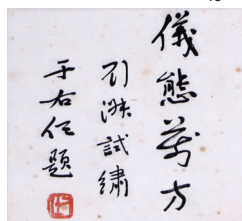 儀態萬方
刘漱試繡
于右任題